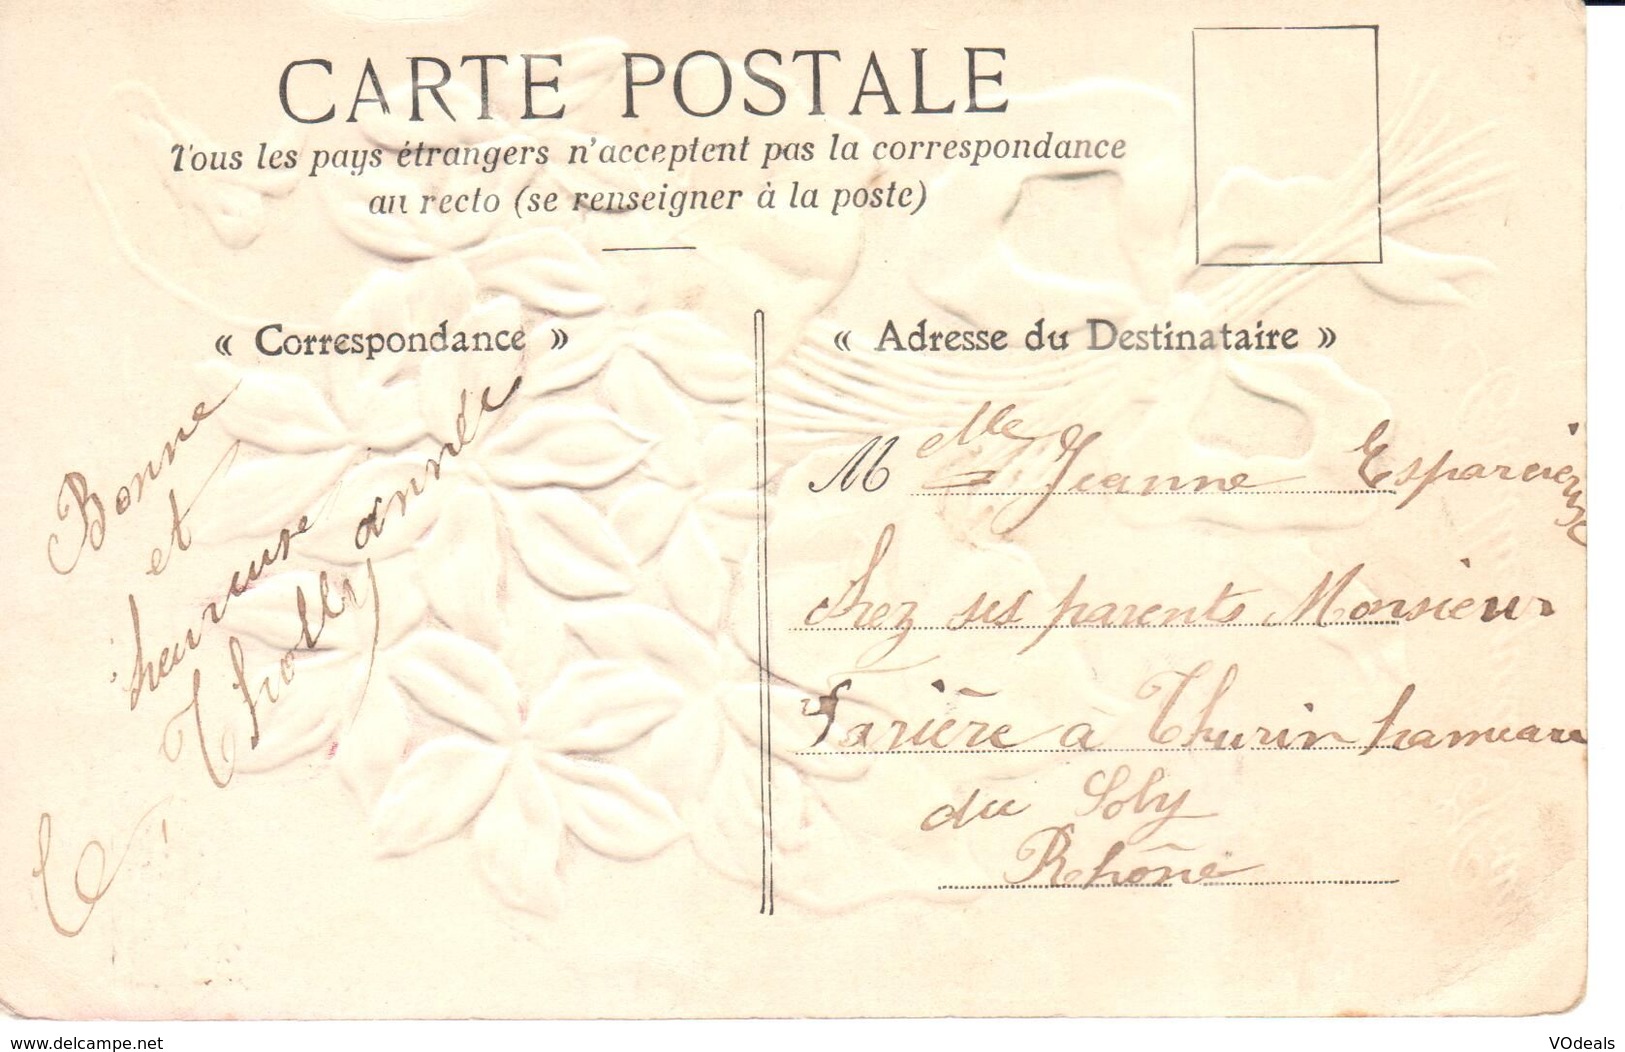 CARTE POSTALE
Tous les pays étrangers n'acceptent pas la correspondance
au recto (se renseigner à la poste)
« Correspondance »
« Adresse du Destinataire »
Bonne
et
heureuse année
Tholly
M elle Jeanne
chez ses parents Monsieur
Farière à Thurin hameau
du Soly
Rhône
www.delcampe.net
VOdeals